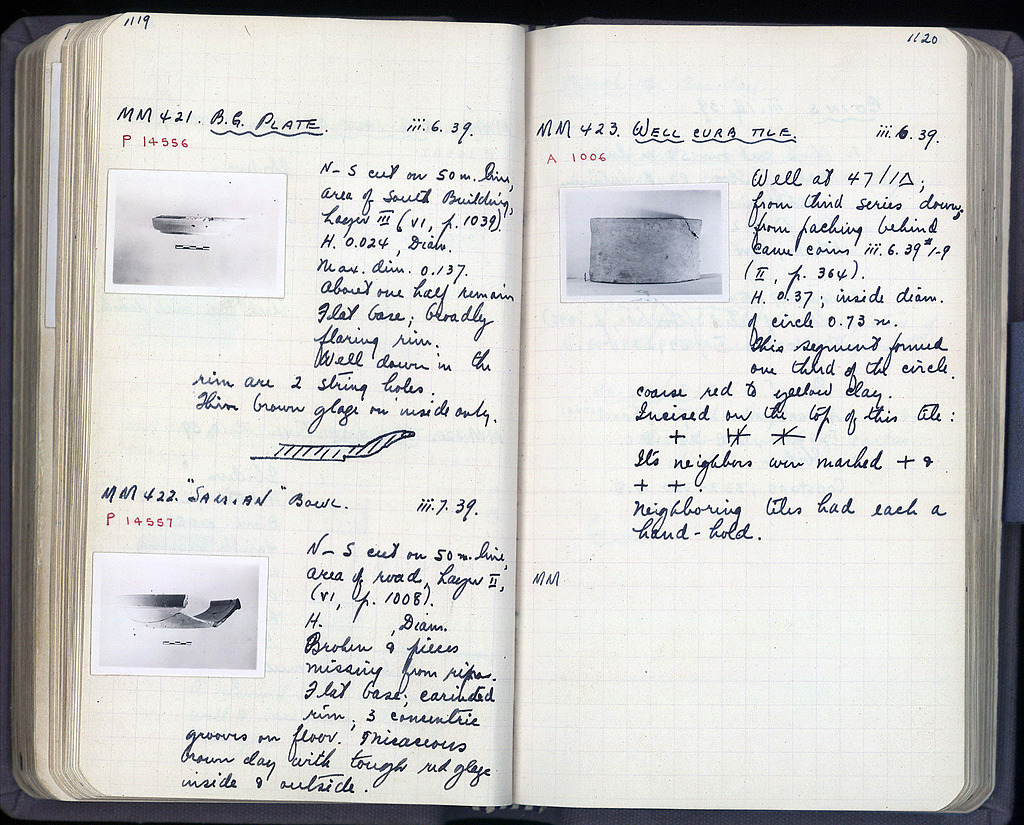 1119
MM 421. B.G. PLATE. iii.6.39.
P 14556
N-S cut on 50 m. line,
area of South Building,
Layer III (VI, p. 1039).
H. 0.024, Diam.
Max. dim. 0.137.
About one half remains
Flat base; broadly
flaring rim.
Well down in the
rim are 2 string holes.
Thin brown glaze on inside only.
MM 422. "SAMIAN" BOWL. iii.7.39.
P 14557
N-S cut on 50 m. line,
area of road, Layer II,
(VI, p. 1008).
H. , Diam.
Broken & pieces
missing from
Flat base; carinated
rim; 3 concentric
grooves on floor. Micaceous
brown clay with tough red glaze
inside & outside.
1120
MM 423. WELL CURB TILE. iii.6.39.
A 1006
Well at 47/ΙΔ;
from third series down,
from packing behind
came coins iii.6.39 #1-9
(II, p. 364).
H. 0.37; inside diam.
of circle 0.73 m.
This segment formed
one third of the circle.
coarse red to yellow clay.
Incised on the top of this tile:
+
Its neighbors were marked + &
+ + .
Neighboring tiles had each a
hand-hold.
MM